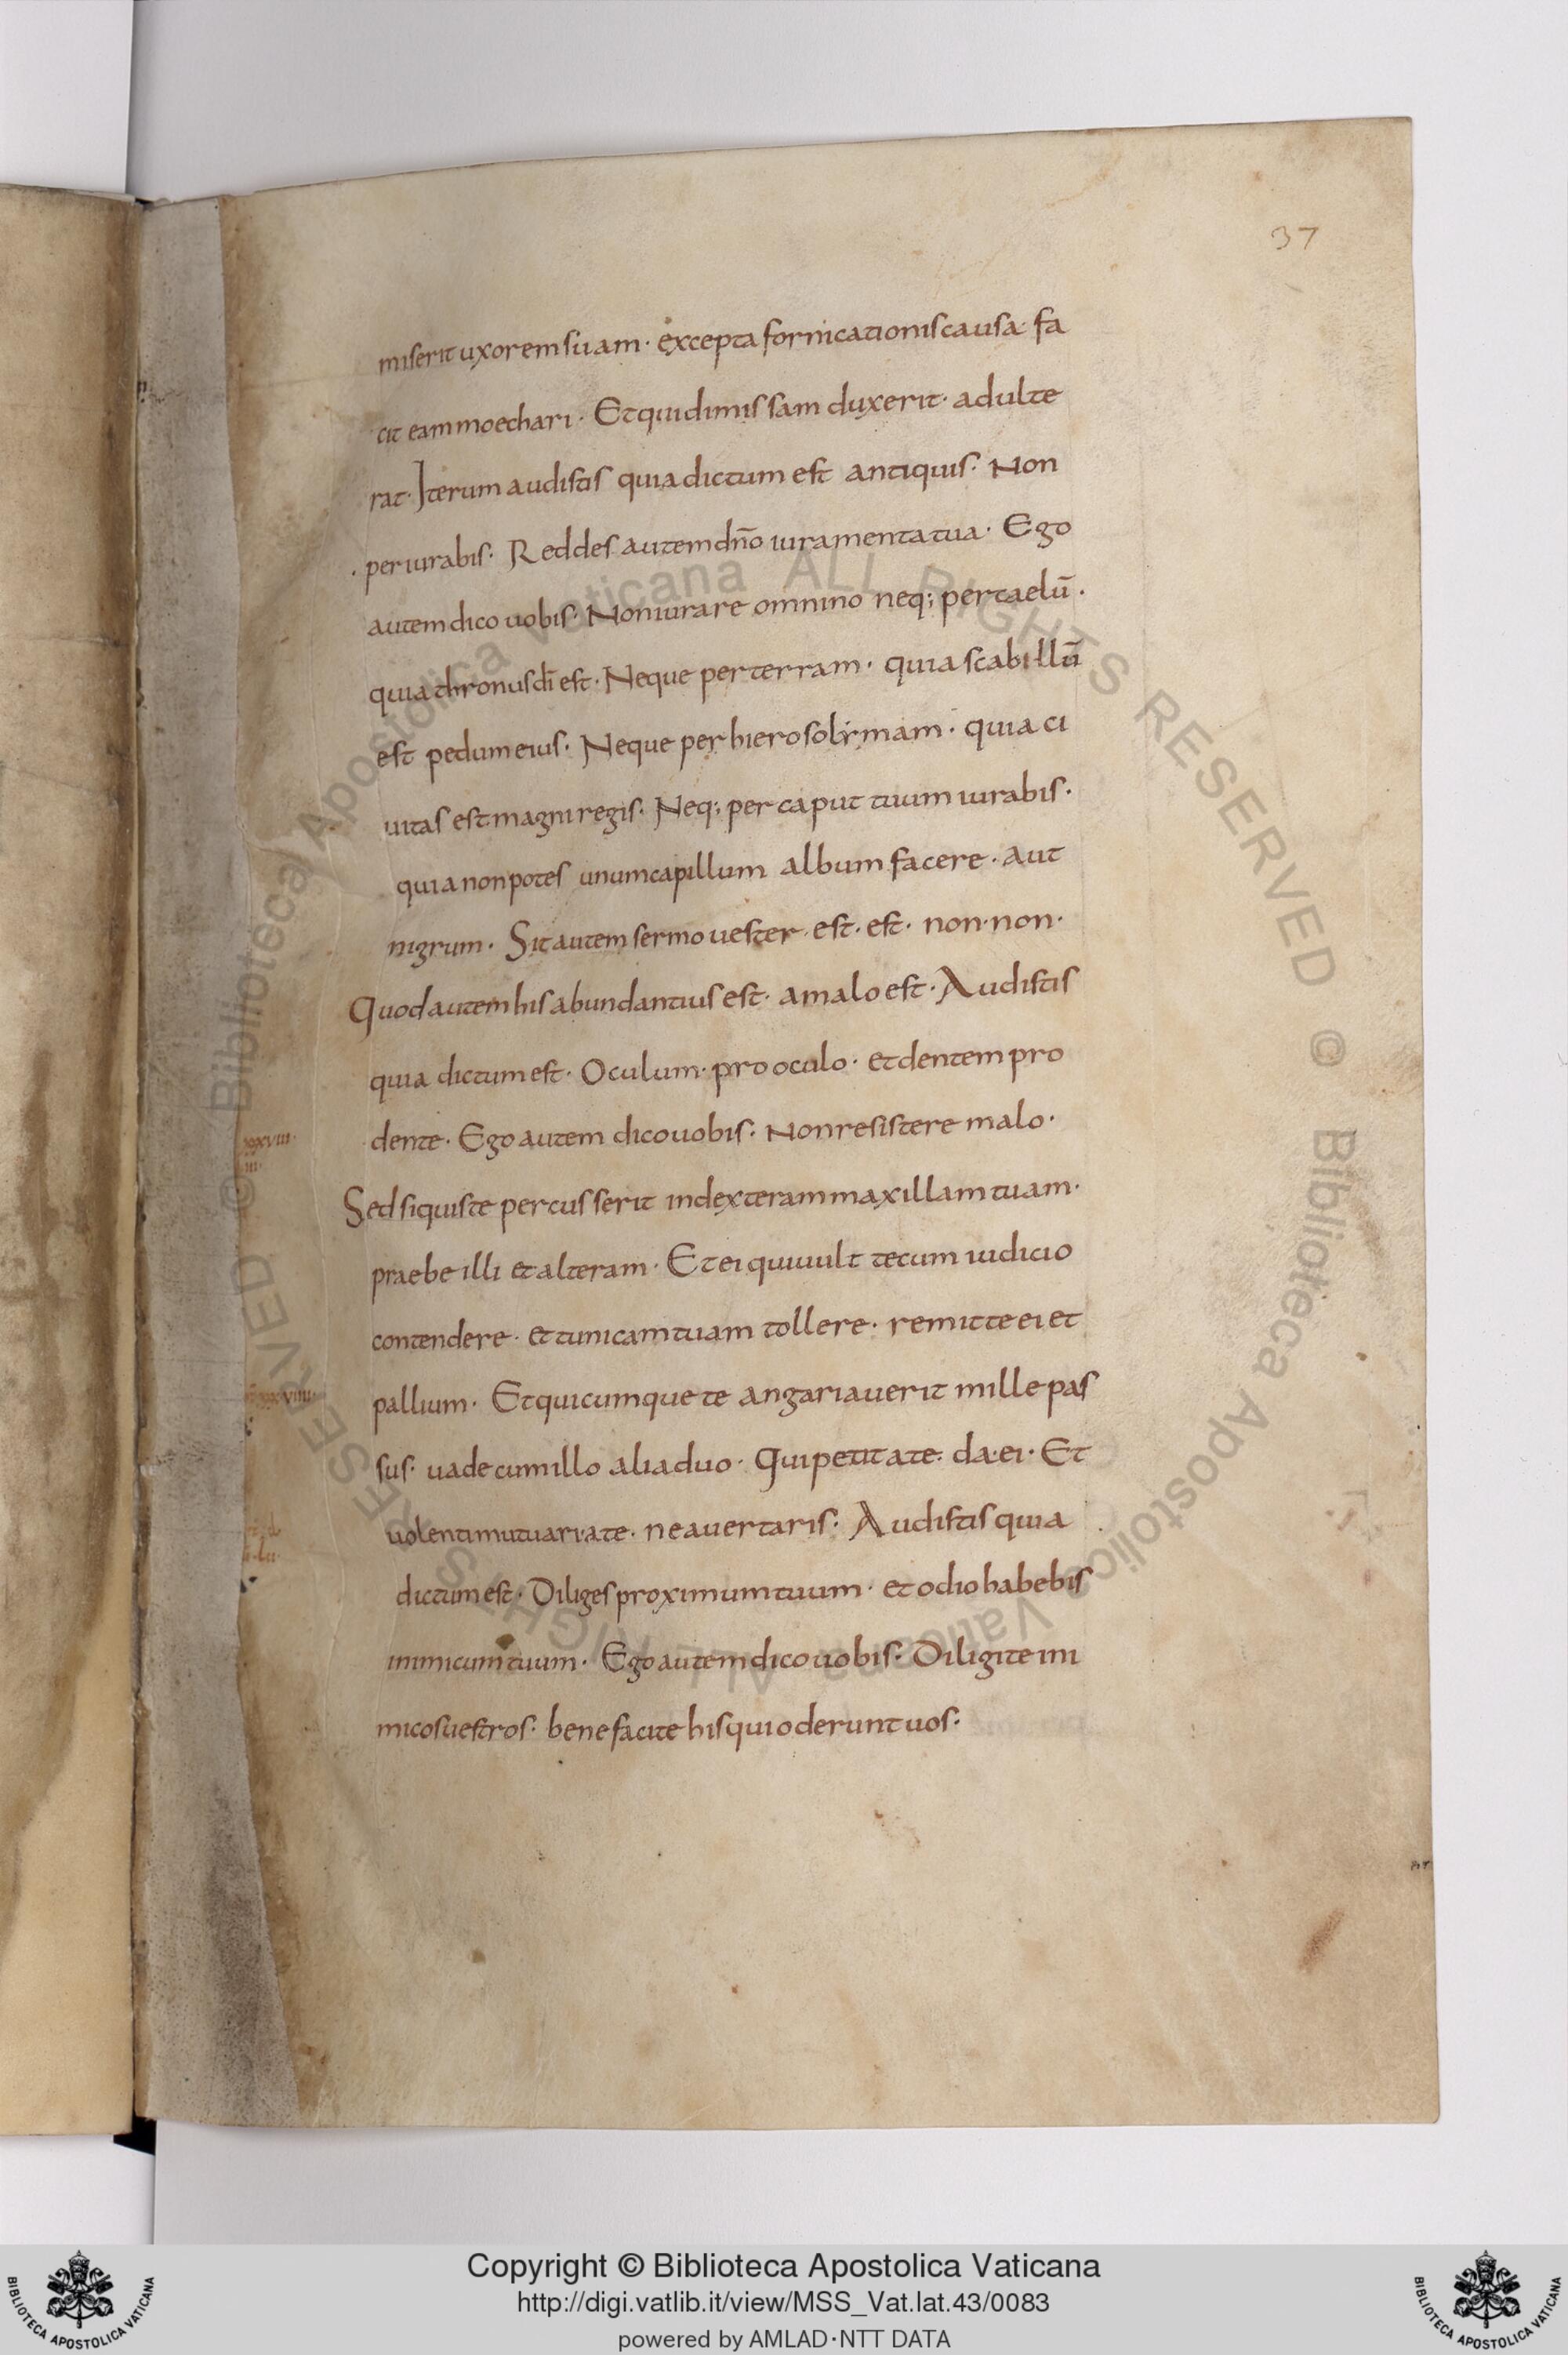 37
miserit uxorem suam · excepta fornicationis causa· fa
cit eam moechari · Et qui dimissam duxerit · adulte
rat · Iterum audistis quia dictum est antiquis · Non
periurabis · Reddes autem dn̄o iuramenta tua · Ego
autem dico uobis · Non iurare omnino neq; per caelū ·
quia thronus dī est · Neque per terram · quia scabillū
est pedum eius · Neque per hierosolymam · quia ci
uitas est magni regis · Neq; per caput tuum iurabis ·
quia non potes unum capillum album facere · aut
nigrum · Sit autem sermo uester · est · est · non · non ·
Quod autem his abundantius est · a malo est · Audistis
quia dictum est · Oculum · pro oculo · et dentem pro
dente · Ego autem dico uobis · Non resistere malo ·
Sed si quis te percusserit in dexteram maxillam tuam ·
praebe illi et alteram · Et ei qui uult tecum iudicio
contendere · et tunicam tuam tollere · remitte ei et
pallium · Et quicumque te angariauerit mille pas
sus · uade cum illo alia duo · Qui petit a te · da ei · Et
uolenti mutuari a te · ne auertaris · Audistis quia
dictum est · Diliges proximum tuum · et odio habebis
inimicum tuum · Ego autem dico uobis · Diligite ini
micos uestros · benefacite his qui oderunt uos ·
© Biblioteca Apostolica Vaticana ALL RIGHTS RESERVED © Biblioteca Apostolica Vaticana ALL RIGHTS RESERVED
Copyright © Biblioteca Apostolica Vaticana
http://digi.vatlib.it/view/MSS_Vat.lat.43/0083
powered by AMLAD·NTT DATA
BIBLIOTECA APOSTOLICA VATICANA
BIBLIOTECA APOSTOLICA VATICANA